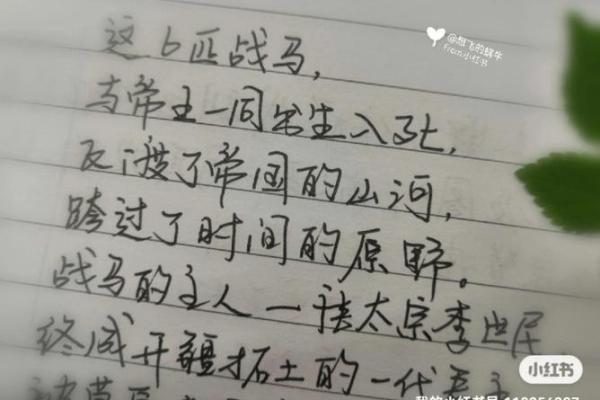 @想飞的蜗牛
From小红书
这6匹战马,
与帝王一同出生入死,
反渡了帝国的山河,
跨过了时间的原野。
战马的主人一唐太宗李世民
终成开疆拓土的一代
小红书
我的小红书号